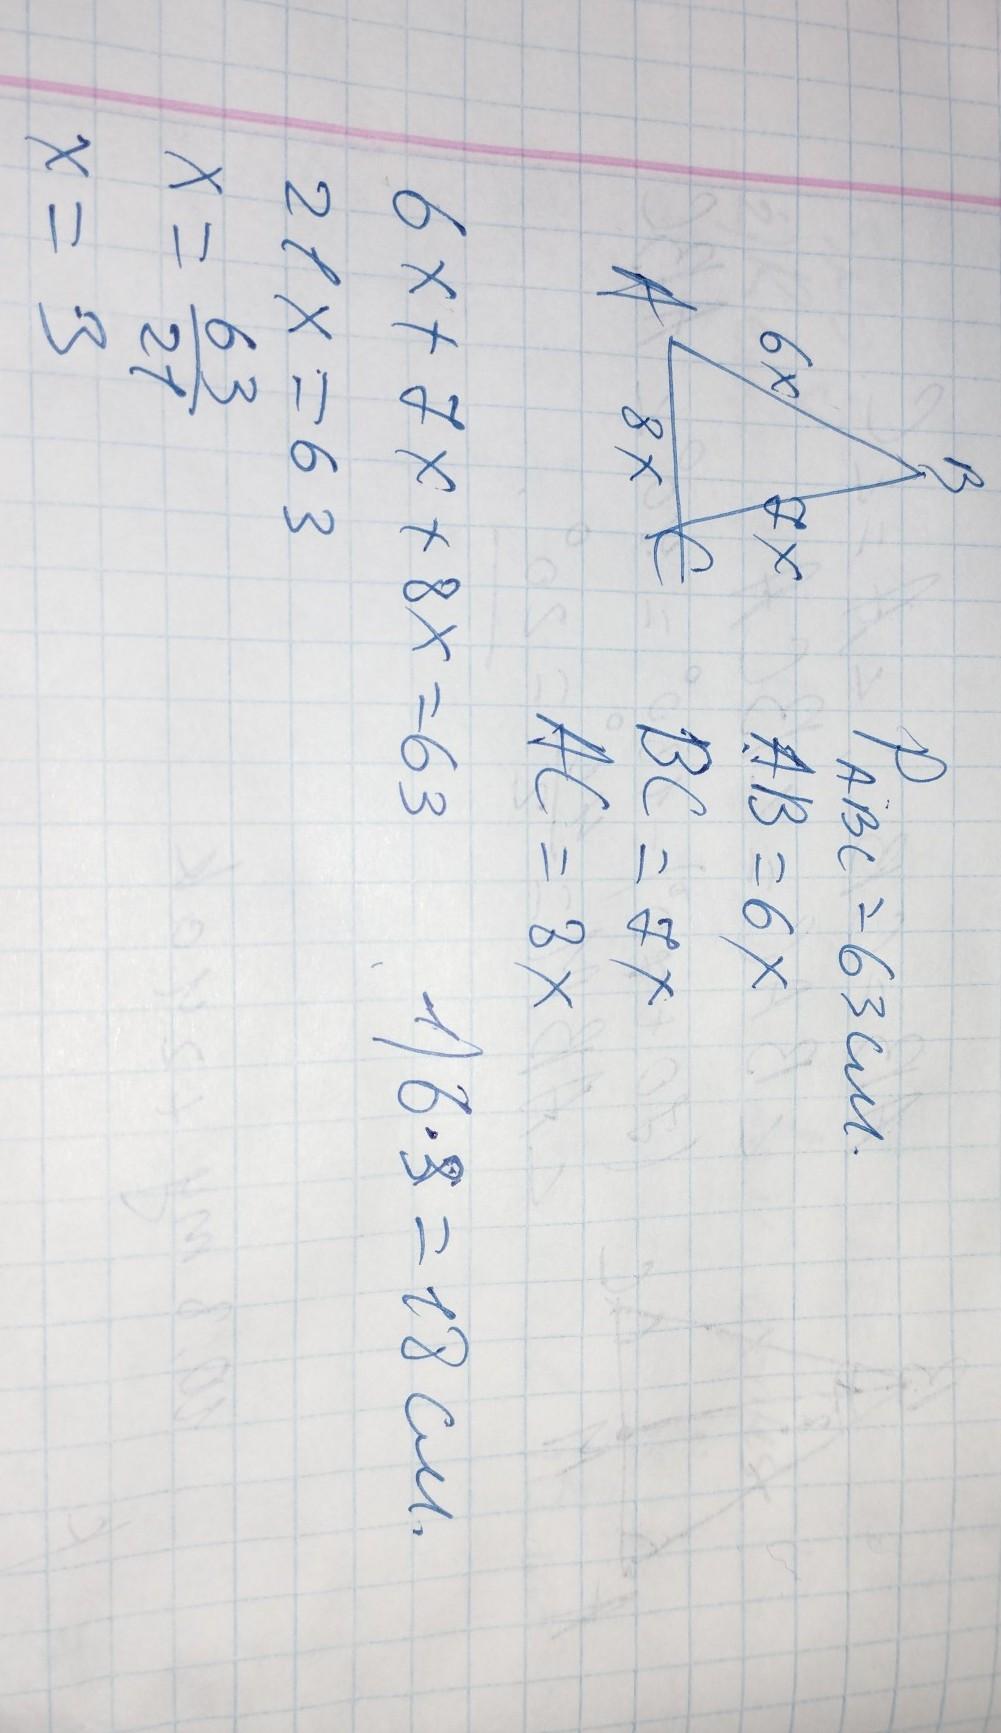 B
6x
7x
A
8x
C
P ABC = 63 см.
AB = 6x
BC = 7x
AC = 8x
6x + 7x + 8x = 63
21x = 63
x = 63/21
x = 3
1) 6 · 3 = 18 см.